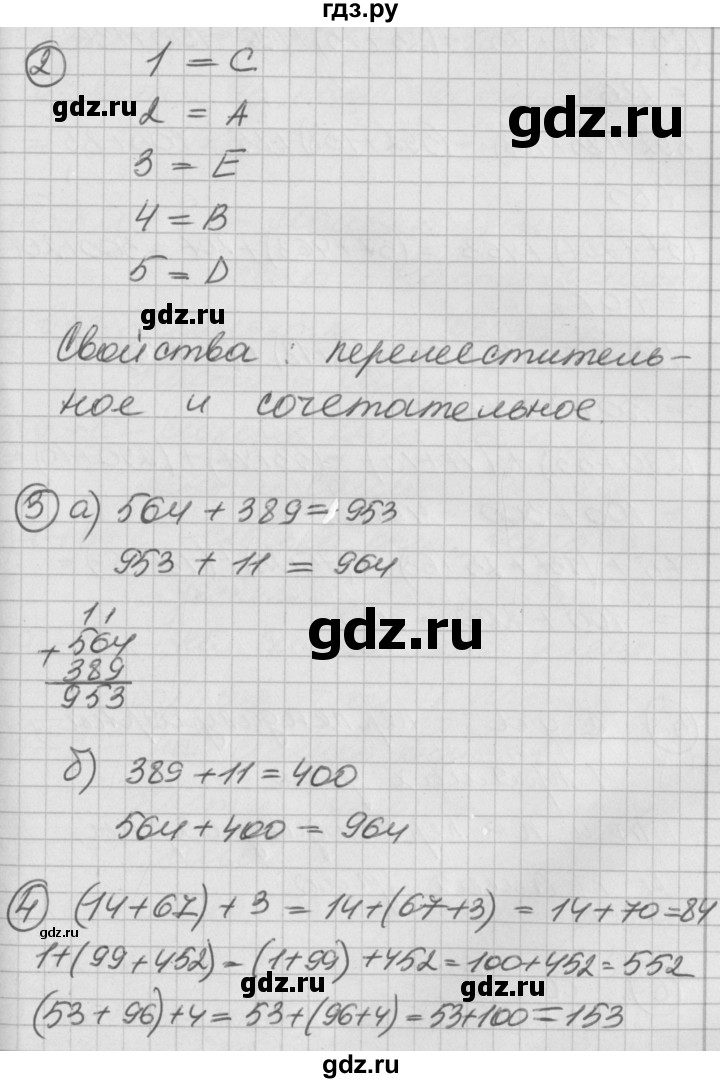 гдз.ру
2 1 = С
gdz.ru
2 = А
gdz.ru
3 = Е
4 = В
5 = D
gdz.ru
Свойства : переместитель-
ное и сочетательное.
3 а) 564 + 389 = 953
953 + 11 = 964
gdz.ru
11
+ 564
389
953
б) 389 + 11 = 400
564 + 400 = 964
4 (14+67) + 3 = 14+(67+3) = 14+70=84
gdz.ru
1+(99+452) = (1+99) + 452 = 100+452 = 552
gdz.ru
gdz.ru
(53 + 96) + 4 = 53+(96+4) = 53+100 = 153
gdz.ru